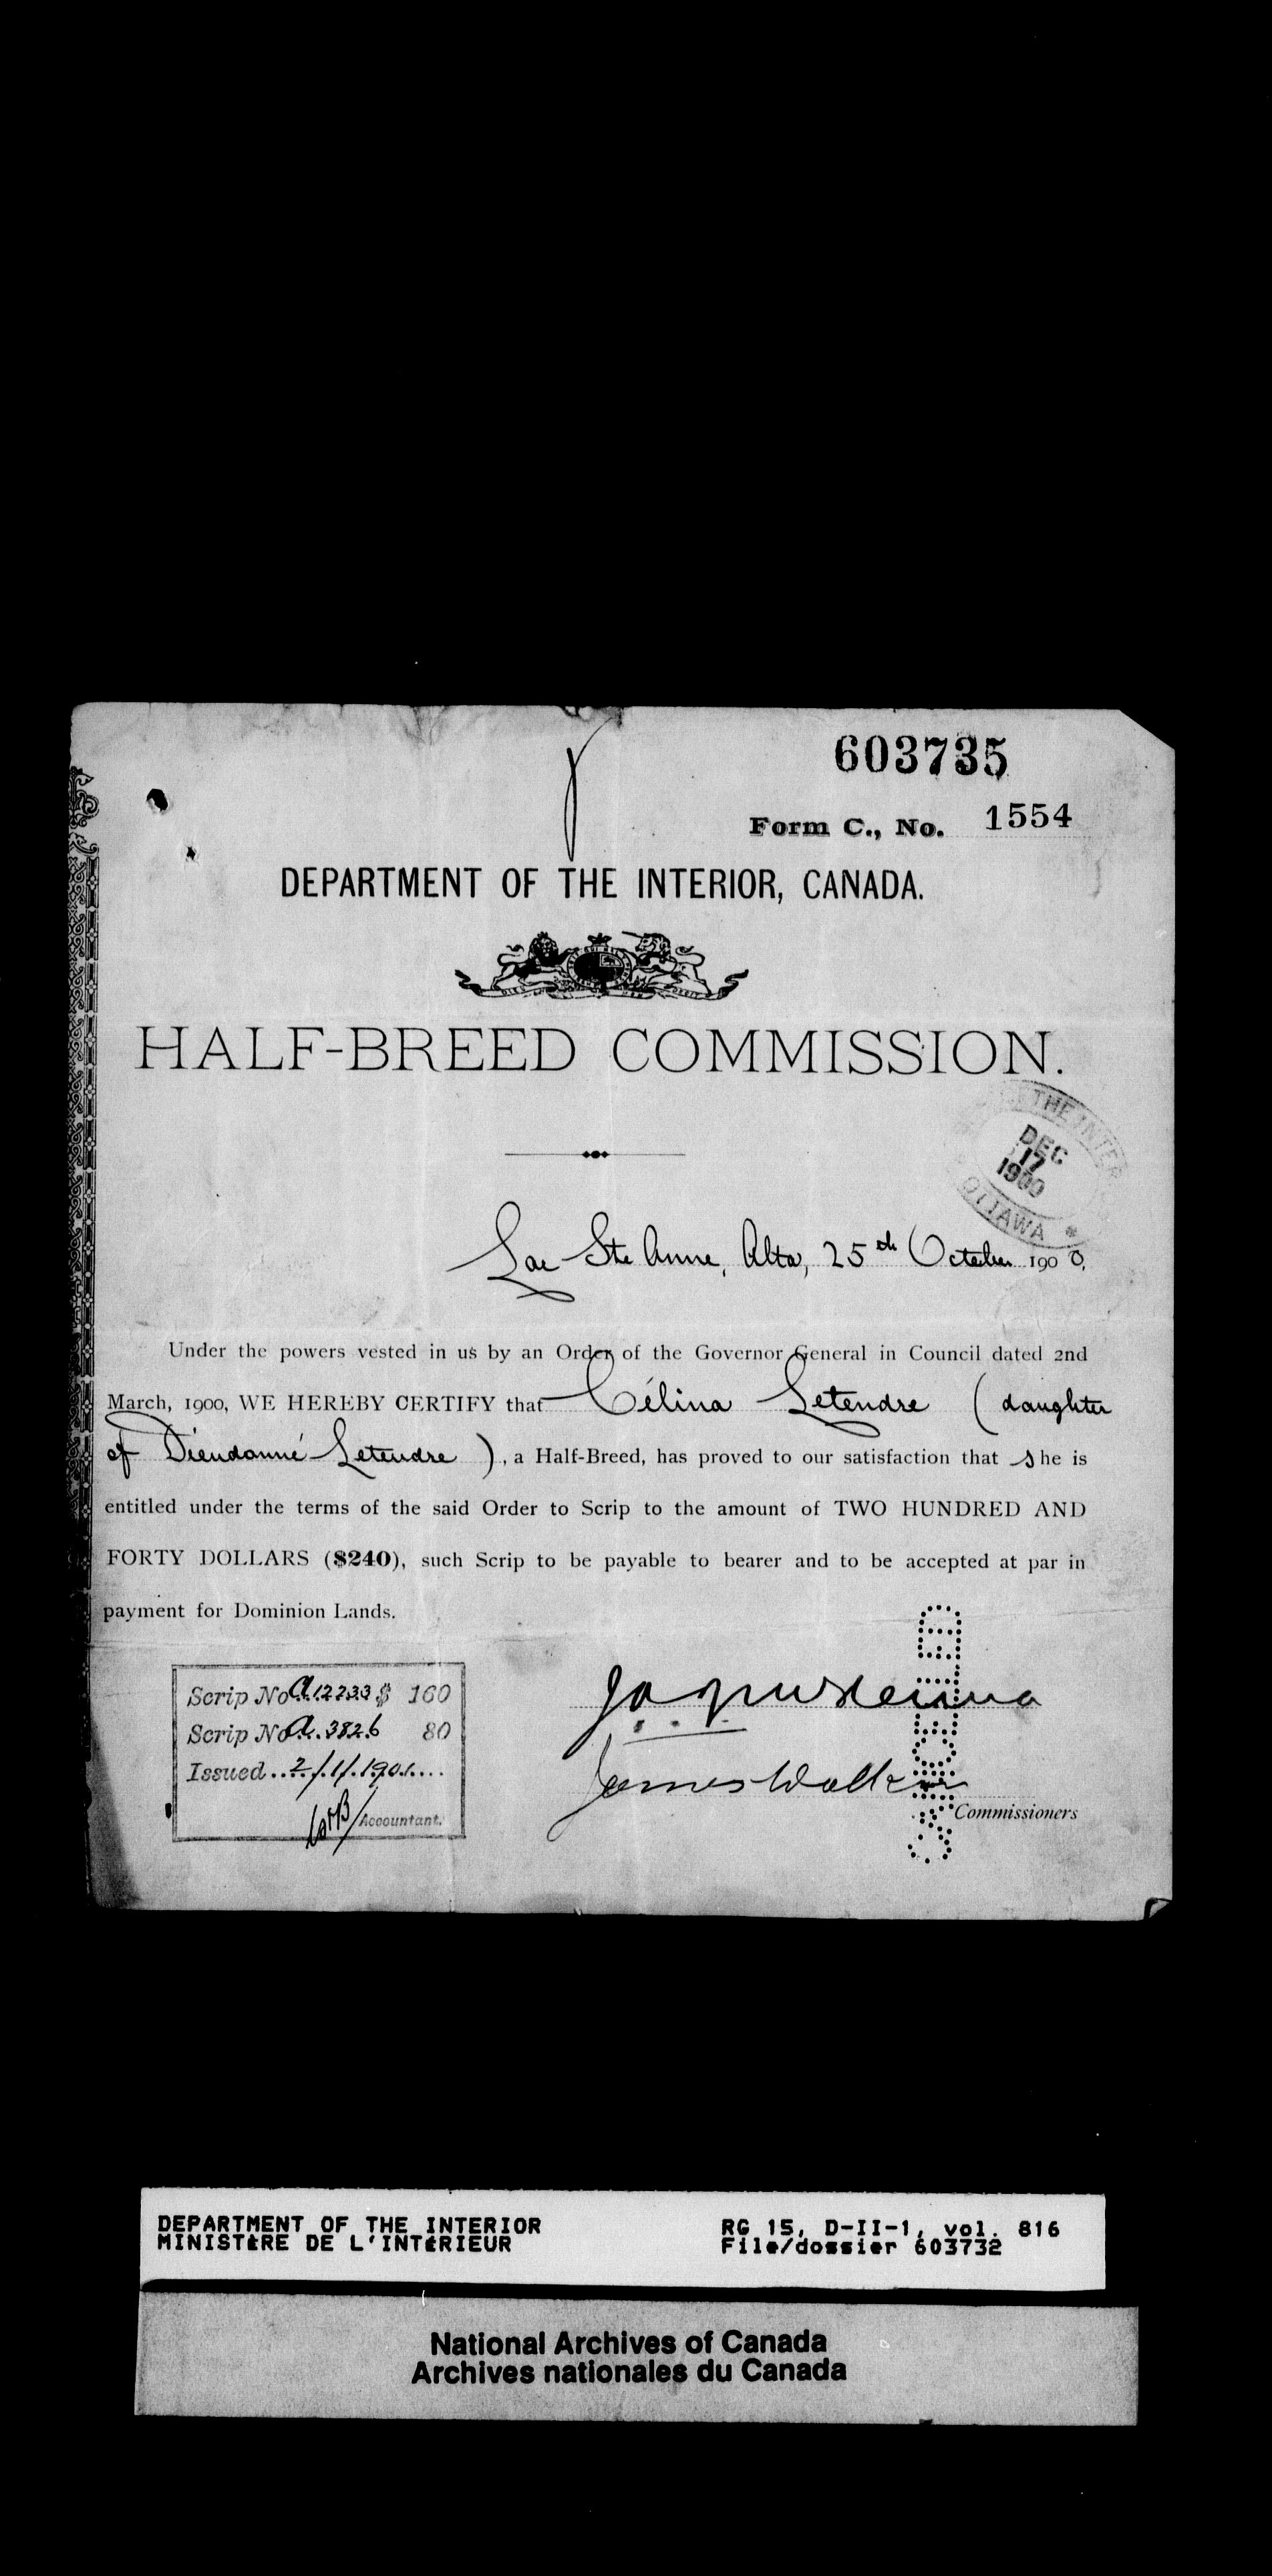 603735
Form C., No. 1554
DEPARTMENT OF THE INTERIOR, CANADA.
HALF-BREED COMMISSION.
THE INTER
DEC
17
1900
OTTAWA *
Lac Ste Anne, Alta, 25th October 1900.
Under the powers vested in us by an Order of the Governor General in Council dated 2nd
March, 1900, WE HEREBY CERTIFY that Célina Letendre (daughter
of Dieudonné Letendre), a Half-Breed, has proved to our satisfaction that she is
entitled under the terms of the said Order to Scrip to the amount of TWO HUNDRED AND
FORTY DOLLARS ($240), such Scrip to be payable to bearer and to be accepted at par in
payment for Dominion Lands.
Scrip No A.12233 $ 160
Scrip No A.3826 80
Issued 2/1/1901
Accountant.
James Walker
Commissioners
DEPARTMENT OF THE INTERIOR
MINISTÈRE DE L'INTÉRIEUR
RG 15, D-II-1, vol. 816
File/dossier 603732
National Archives of Canada
Archives nationales du Canada